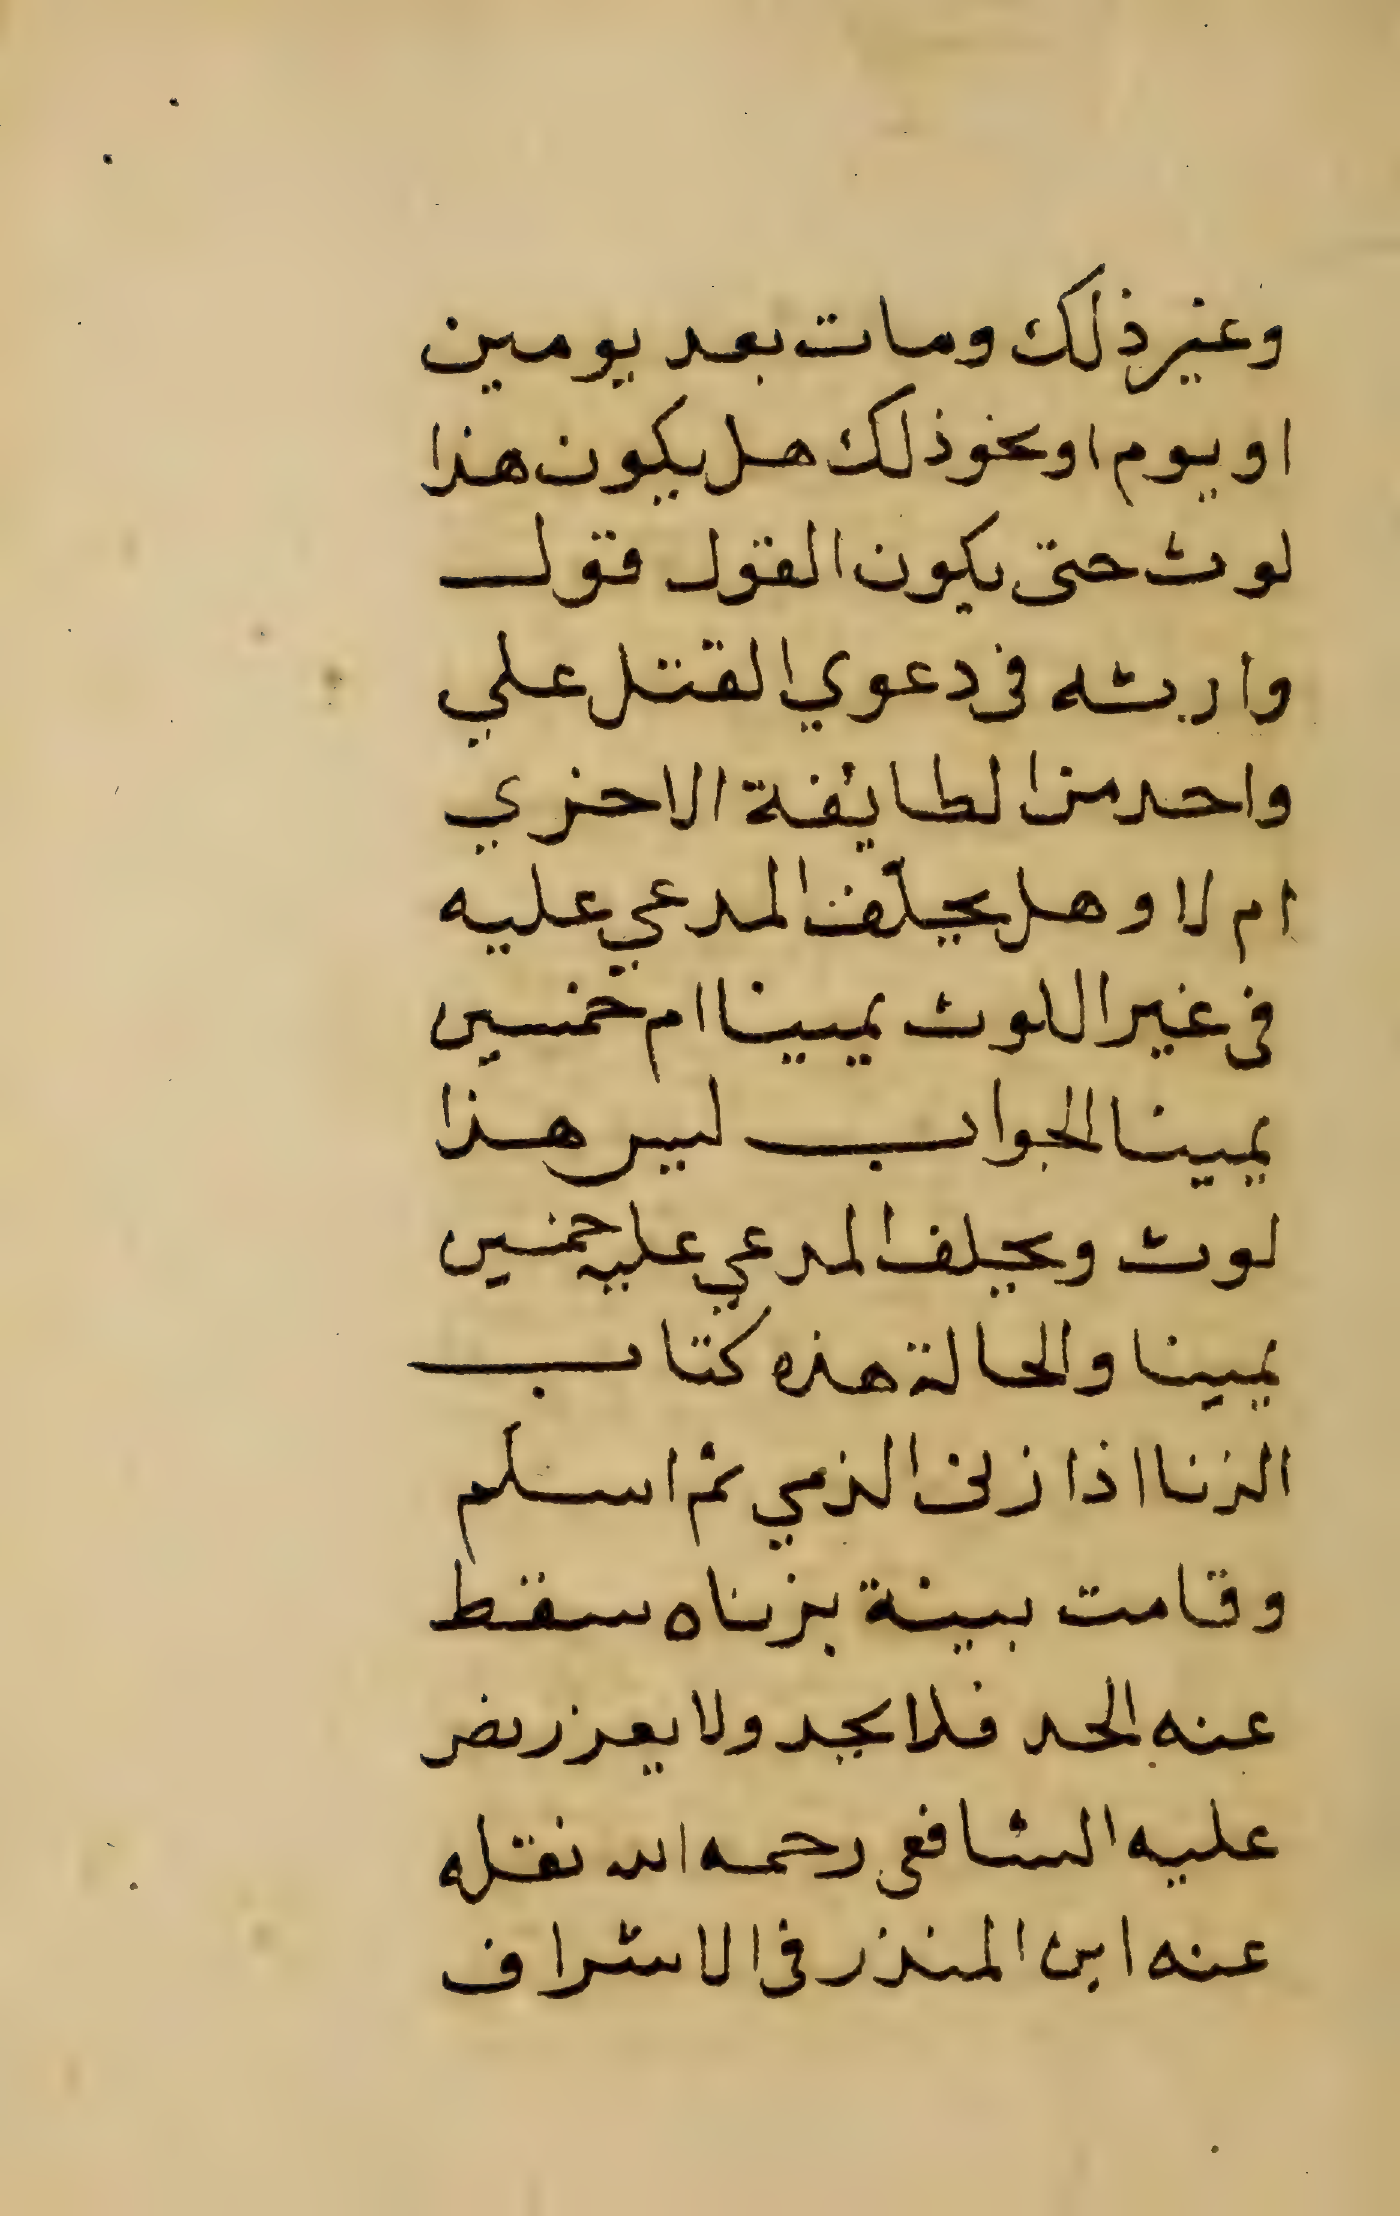 وغير ذلك ومات بعد يومين
او يوم او نحو ذلك هل يكون هذا
لوث حتى يكون القول قول
وارثه فى دعوي القتل علي
واحد من الطائفة الاخري
ام لا و هل يحلف المدعي عليه
فى غير اللوث يمينا ام خمسين
يمينا الجواب ليس هذا
لوث ويحلف المدعي عليه خمسين
يمينا والحالة هذه كتاب
الزنا اذا زنى الذمي ثم اسلم
وقامت بينة بزناه سقط
عنه الحد فلا يحد ولا يعزر نص
عليه الشافعى رحمه الله نقله
عنه ابن المنذر فى الاشراف